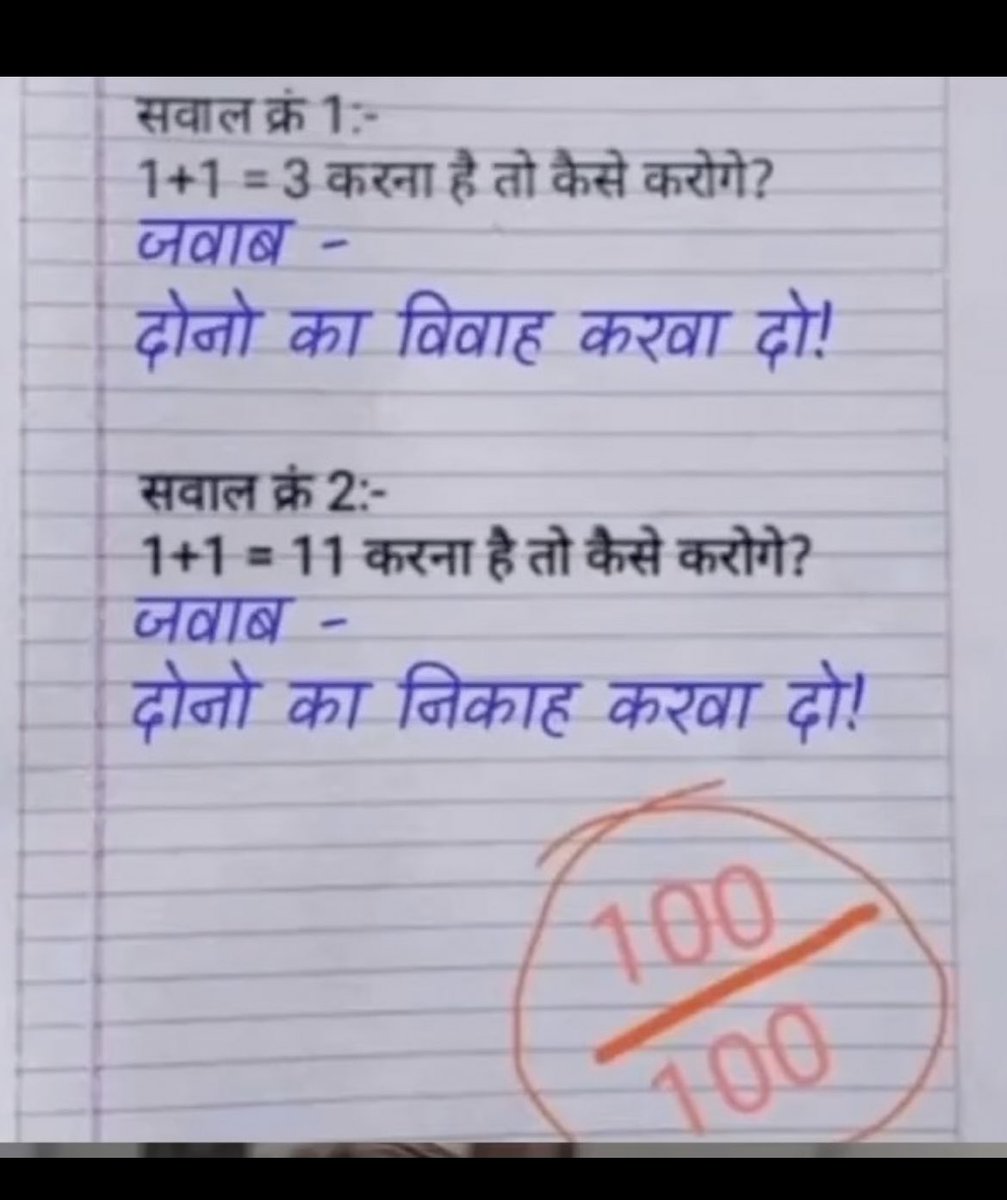 सवाल क्रं 1:-
1+1 = 3 करना है तो कैसे करोगे?
जवाब -
दोनो का विवाह करवा दो!
सवाल क्रं 2:-
1+1 = 11 करना है तो कैसे करोगे?
जवाब -
दोनो का निकाह करवा दो!
100
100